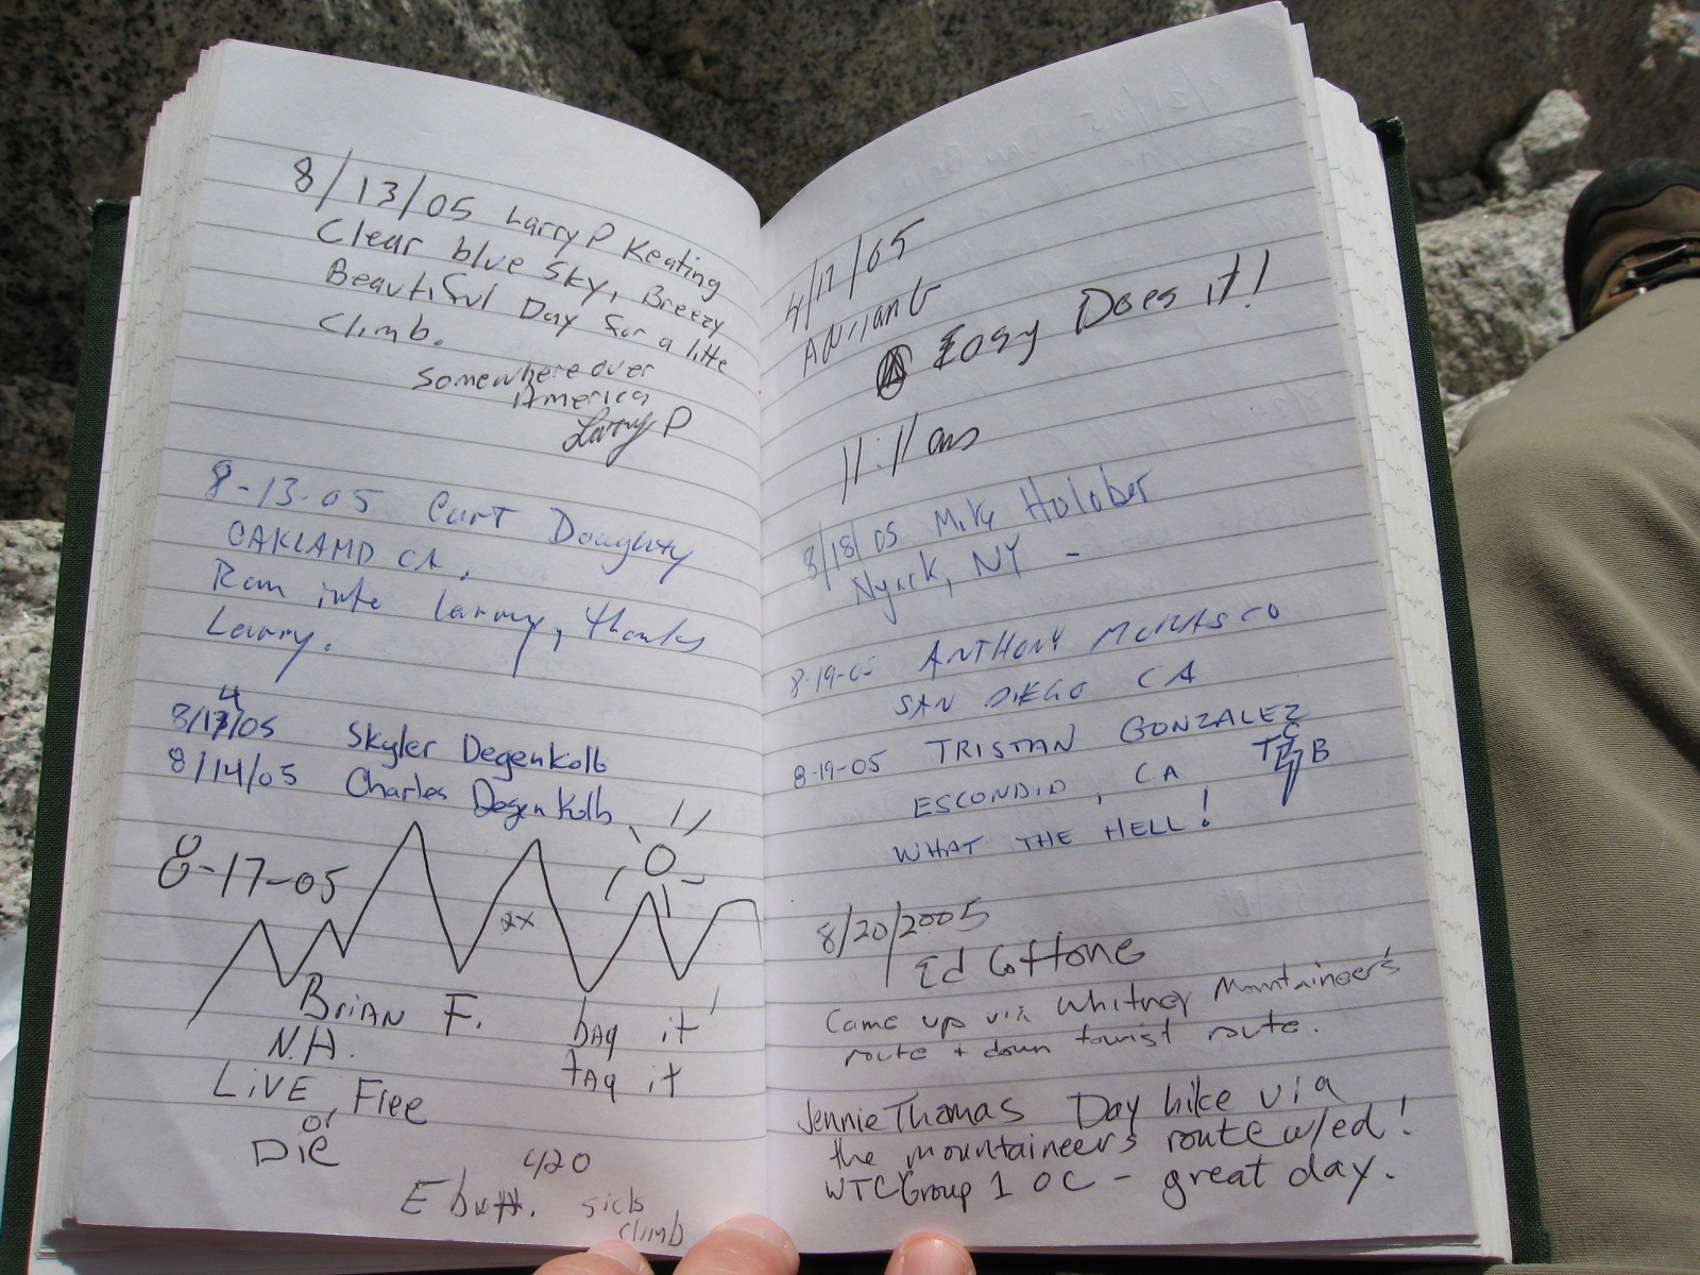 8/13/05 Larry P Keating
Clear blue sky, Breezy
Beautiful Day for a litte
climb.
Somewhere over
America
Larry P
8-13-05 Curt Doughty
OAKLAND CA.
Ran into Larry, thanks
Larry.
4
8/13/05 Skyler Degenkolb
8/14/05 Charles Degenkolb
8-17-05
2x
BriAN F.
N.H.
LiVE Free
or
Die
bAg it
tAg it
420
E butt. sick
climb
/05
Easy Does it!
11:11 am
8/18/05 Mike Holober
Nyack, NY -
8-19-05 ANTHONY
SAN DIEGO CA
8-19-05 TRISTAN GONZALEZ
ESCONDIDO, CA
WHAT THE HELL!
8/20/2005
Ed Cottone
Came up via Whitney Mountaineer's
route + down tourist route.
Jennie Thomas Day hike via
the mountaineers route w/ed!
WTC Group 1 OC - great day.